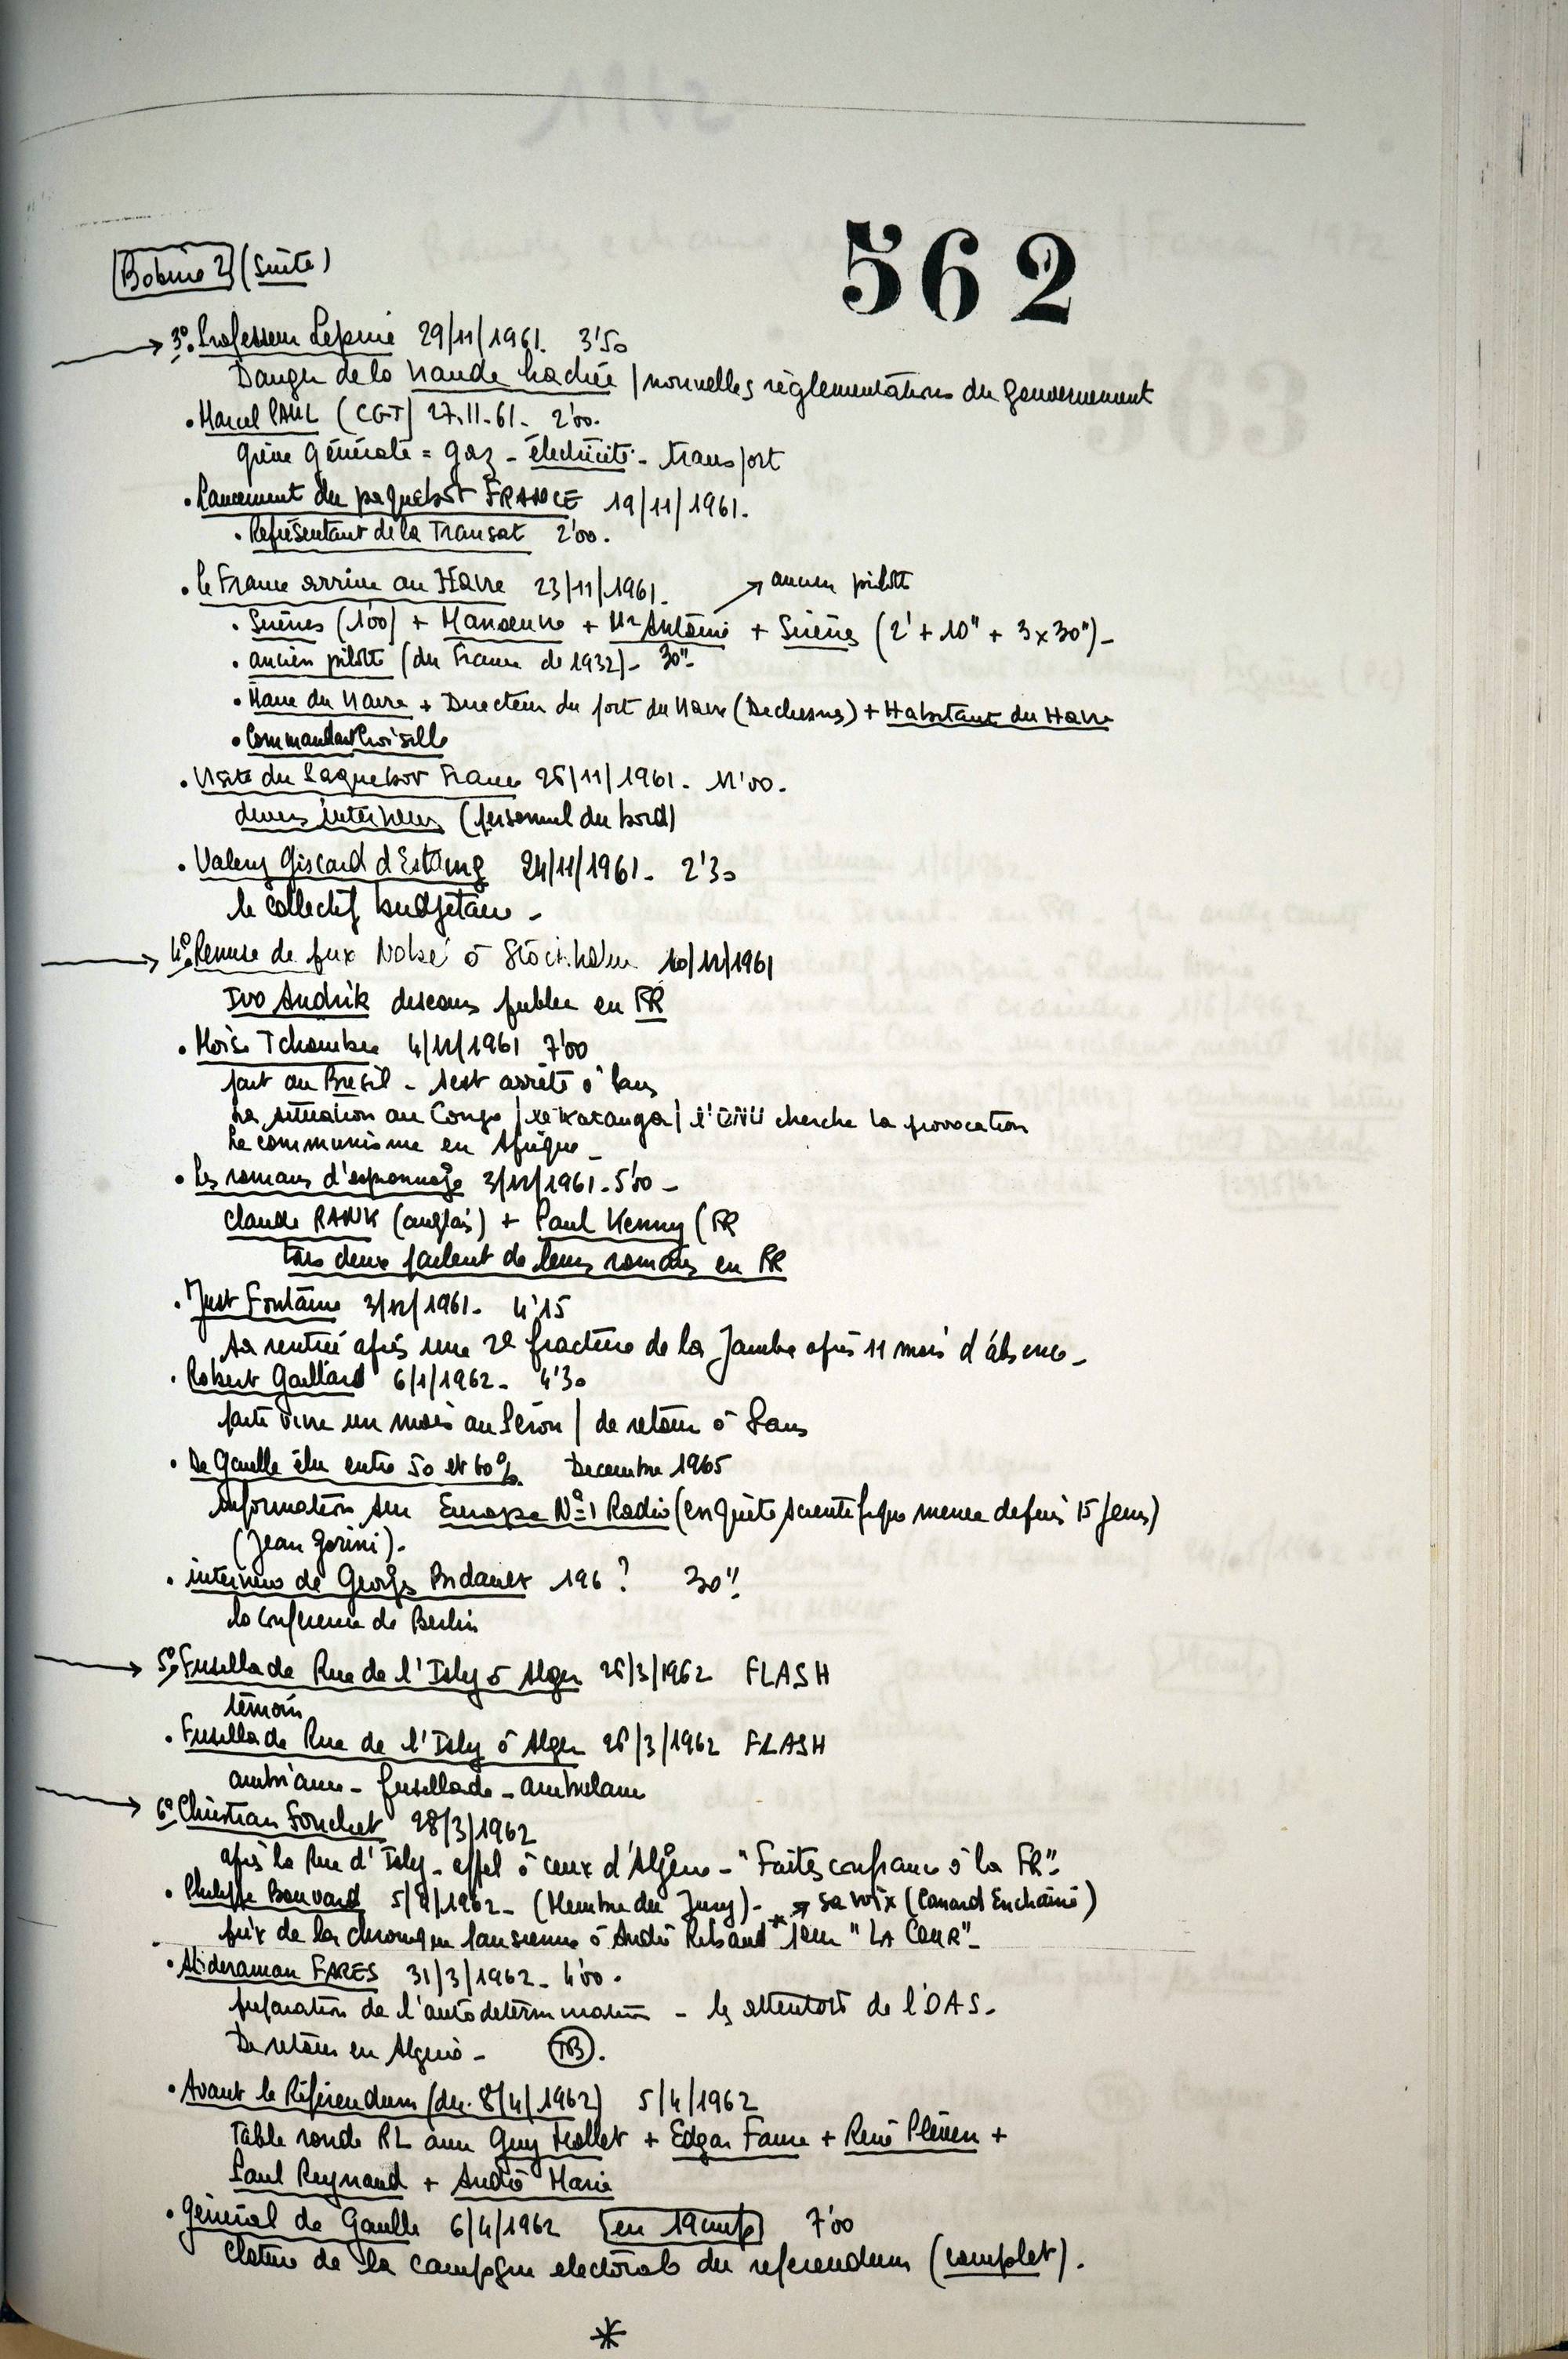 562
Bobine 2 (Suite)
3º. Professeur Lépine 29/11/1961. 3'50
Danger de la viande hachée / nouvelles règlementations du Gouvernement
• Marcel PAUL (CGT) 27.11.61. 2'00.
grève générale = gaz - électricité - transport
• Lancement du paquebot FRANCE 19/11/1961.
• Représentant de la Transat 2'00.
• le France arrive au Havre 23/11/1961.
→ ancien pilote
• Sirènes (1'00) + Manoeuvre + Mr Antoine + Sirènes (2' + 10" + 3x30") -
• ancien pilote (du France de 1932) - 30" -
• Maire du Havre + Directeur du port du Havre (Dechesnes) + Habitant du Havre
• Commandant Croisille
• Visite du Paquebot France 25/11/1961. 11'00.
divers interviews (personnel du bord)
• Valery Giscard d'Estaing 24/11/1961. 2'30
le collectif budgétaire -
4º. Remise de prix Nobel à Stockholm 10/12/1961
Ivo Andrik discours public en FR
• Moïse Tchombe 4/12/1961 7'00
part au Brésil - s'est arrêté à Paris
La situation au Congo / le Katanga / l'ONU cherche la provocation
Le communisme en Afrique -
• Les romans d'espionnage 3/12/1961 - 5'00 -
Claude RANK (anglais) + Paul Kenny (FR
tous deux parlent de leurs romans en FR
• Just Fontaine 3/12/1961. 4'15
Sa rentrée après une 2e fracture de la Jambe après 11 mois d'absence -
• Robert Gaillard 6/1/1962. 4'30
parti vivre un mois au Pérou / de retour à Paris
• De Gaulle élu entre 50 et 60% Decembre 1965
information sur Europe Nº1 Radio (enquête scientifique menée depuis 15 jours)
(Jean Gorini).
• interview de Georges Bidault 196 ? 30"
la conférence de Berlin
5º. Fusillade Rue de l'Isly à Alger 26/3/1962 FLASH
témoin
• Fusillade Rue de l'Isly à Alger 26/3/1962 FLASH
ambiance - fusillade - ambulance
6º Christian Fouchet 28/3/1962
après la Rue d'Isly - appel à ceux d'Algérie - "Faites confiance à la FR" -
• Philippe Bouvard 5/4/1962 - (Membre du Jury) - * → sa voix (Canard Enchainé)
prix de la chronique parisienne à André Ribaud * pour "LA COUR" -
• Abderaman FARES 31/3/1962 - 4'00.
préparation de l'autodétermination - les attentats de l'OAS -
De retour en Algérie - (TB).
• Avant le Référendum (du 8/4/1962) 5/4/1962
Table ronde RL avec Guy Mollet + Edgar Faure + René Pleven +
Paul Reynaud + André Marie
• général de Gaulle 6/4/1962 [en 19 cm/s] 7'00
Cloture de la campagne electorale du referendum (complet).
*